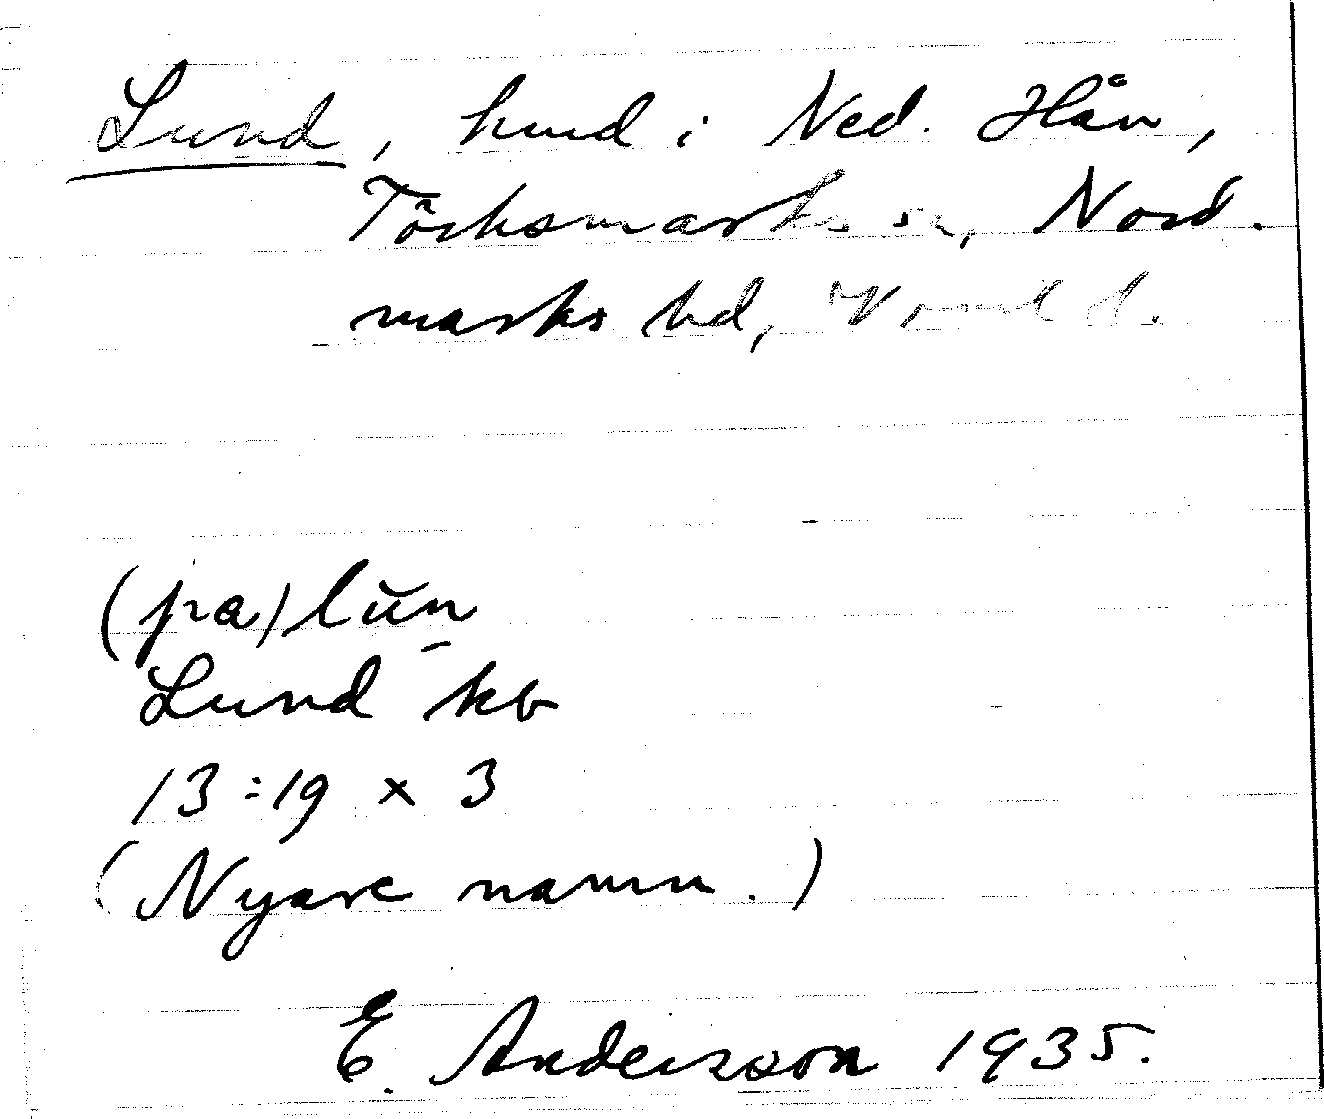 Lund, hmd i Ned. Hån,
Töcksmarks sn, Nord.
marks hd, Värml. l.
(pa) lŭn
Lund kb
13:19 x 3
(Nyare namn.)
E. Andersson 1935.